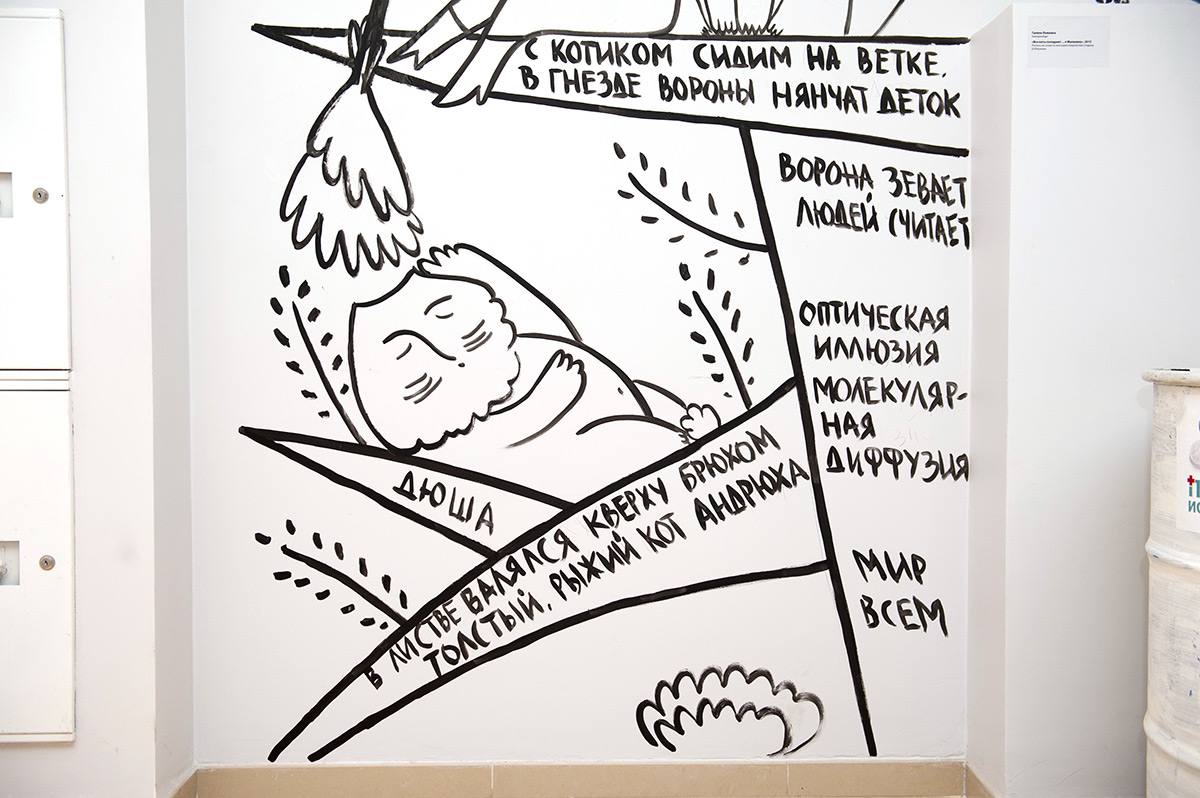 С КОТИКОМ СИДИМ НА ВЕТКЕ.
В ГНЕЗДЕ ВОРОНЫ НЯНЧАТ ДЕТОК
ВОРОНА ЗЕВАЕТ
ЛЮДЕЙ СЧИТАЕТ
ОПТИЧЕСКАЯ
ИЛЛЮЗИЯ
МОЛЕКУЛЯР-
НАЯ
ДИФФУЗИЯ
ДЮША
В ЛИСТВЕ ВАЛЯЛСЯ КВЕРХУ БРЮХОМ
ТОЛСТЫЙ, РЫЖИЙ КОТ АНДРЮХА
МИР
ВСЕМ